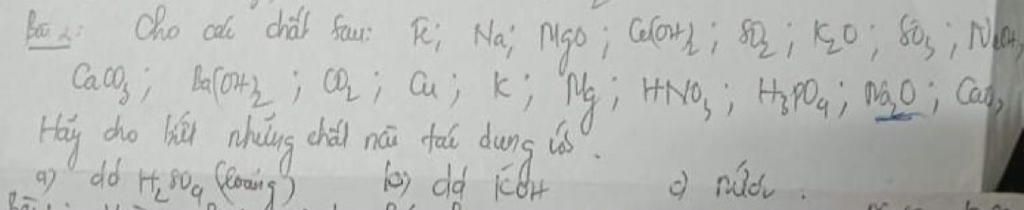 Bài 2: Cho các chất sau: Fe; Na; MgO; Ca(OH)2; SO2; K2O; SO3; NaOH;
CaCO3; Ba(OH)2; CO2; Cu; K; Mg; HNO3; H3PO4; Na2O; CaO,
Hãy cho biết những chất nào tác dụng với.
a) dd H2SO4 (loãng) b) dd KOH c) nước.